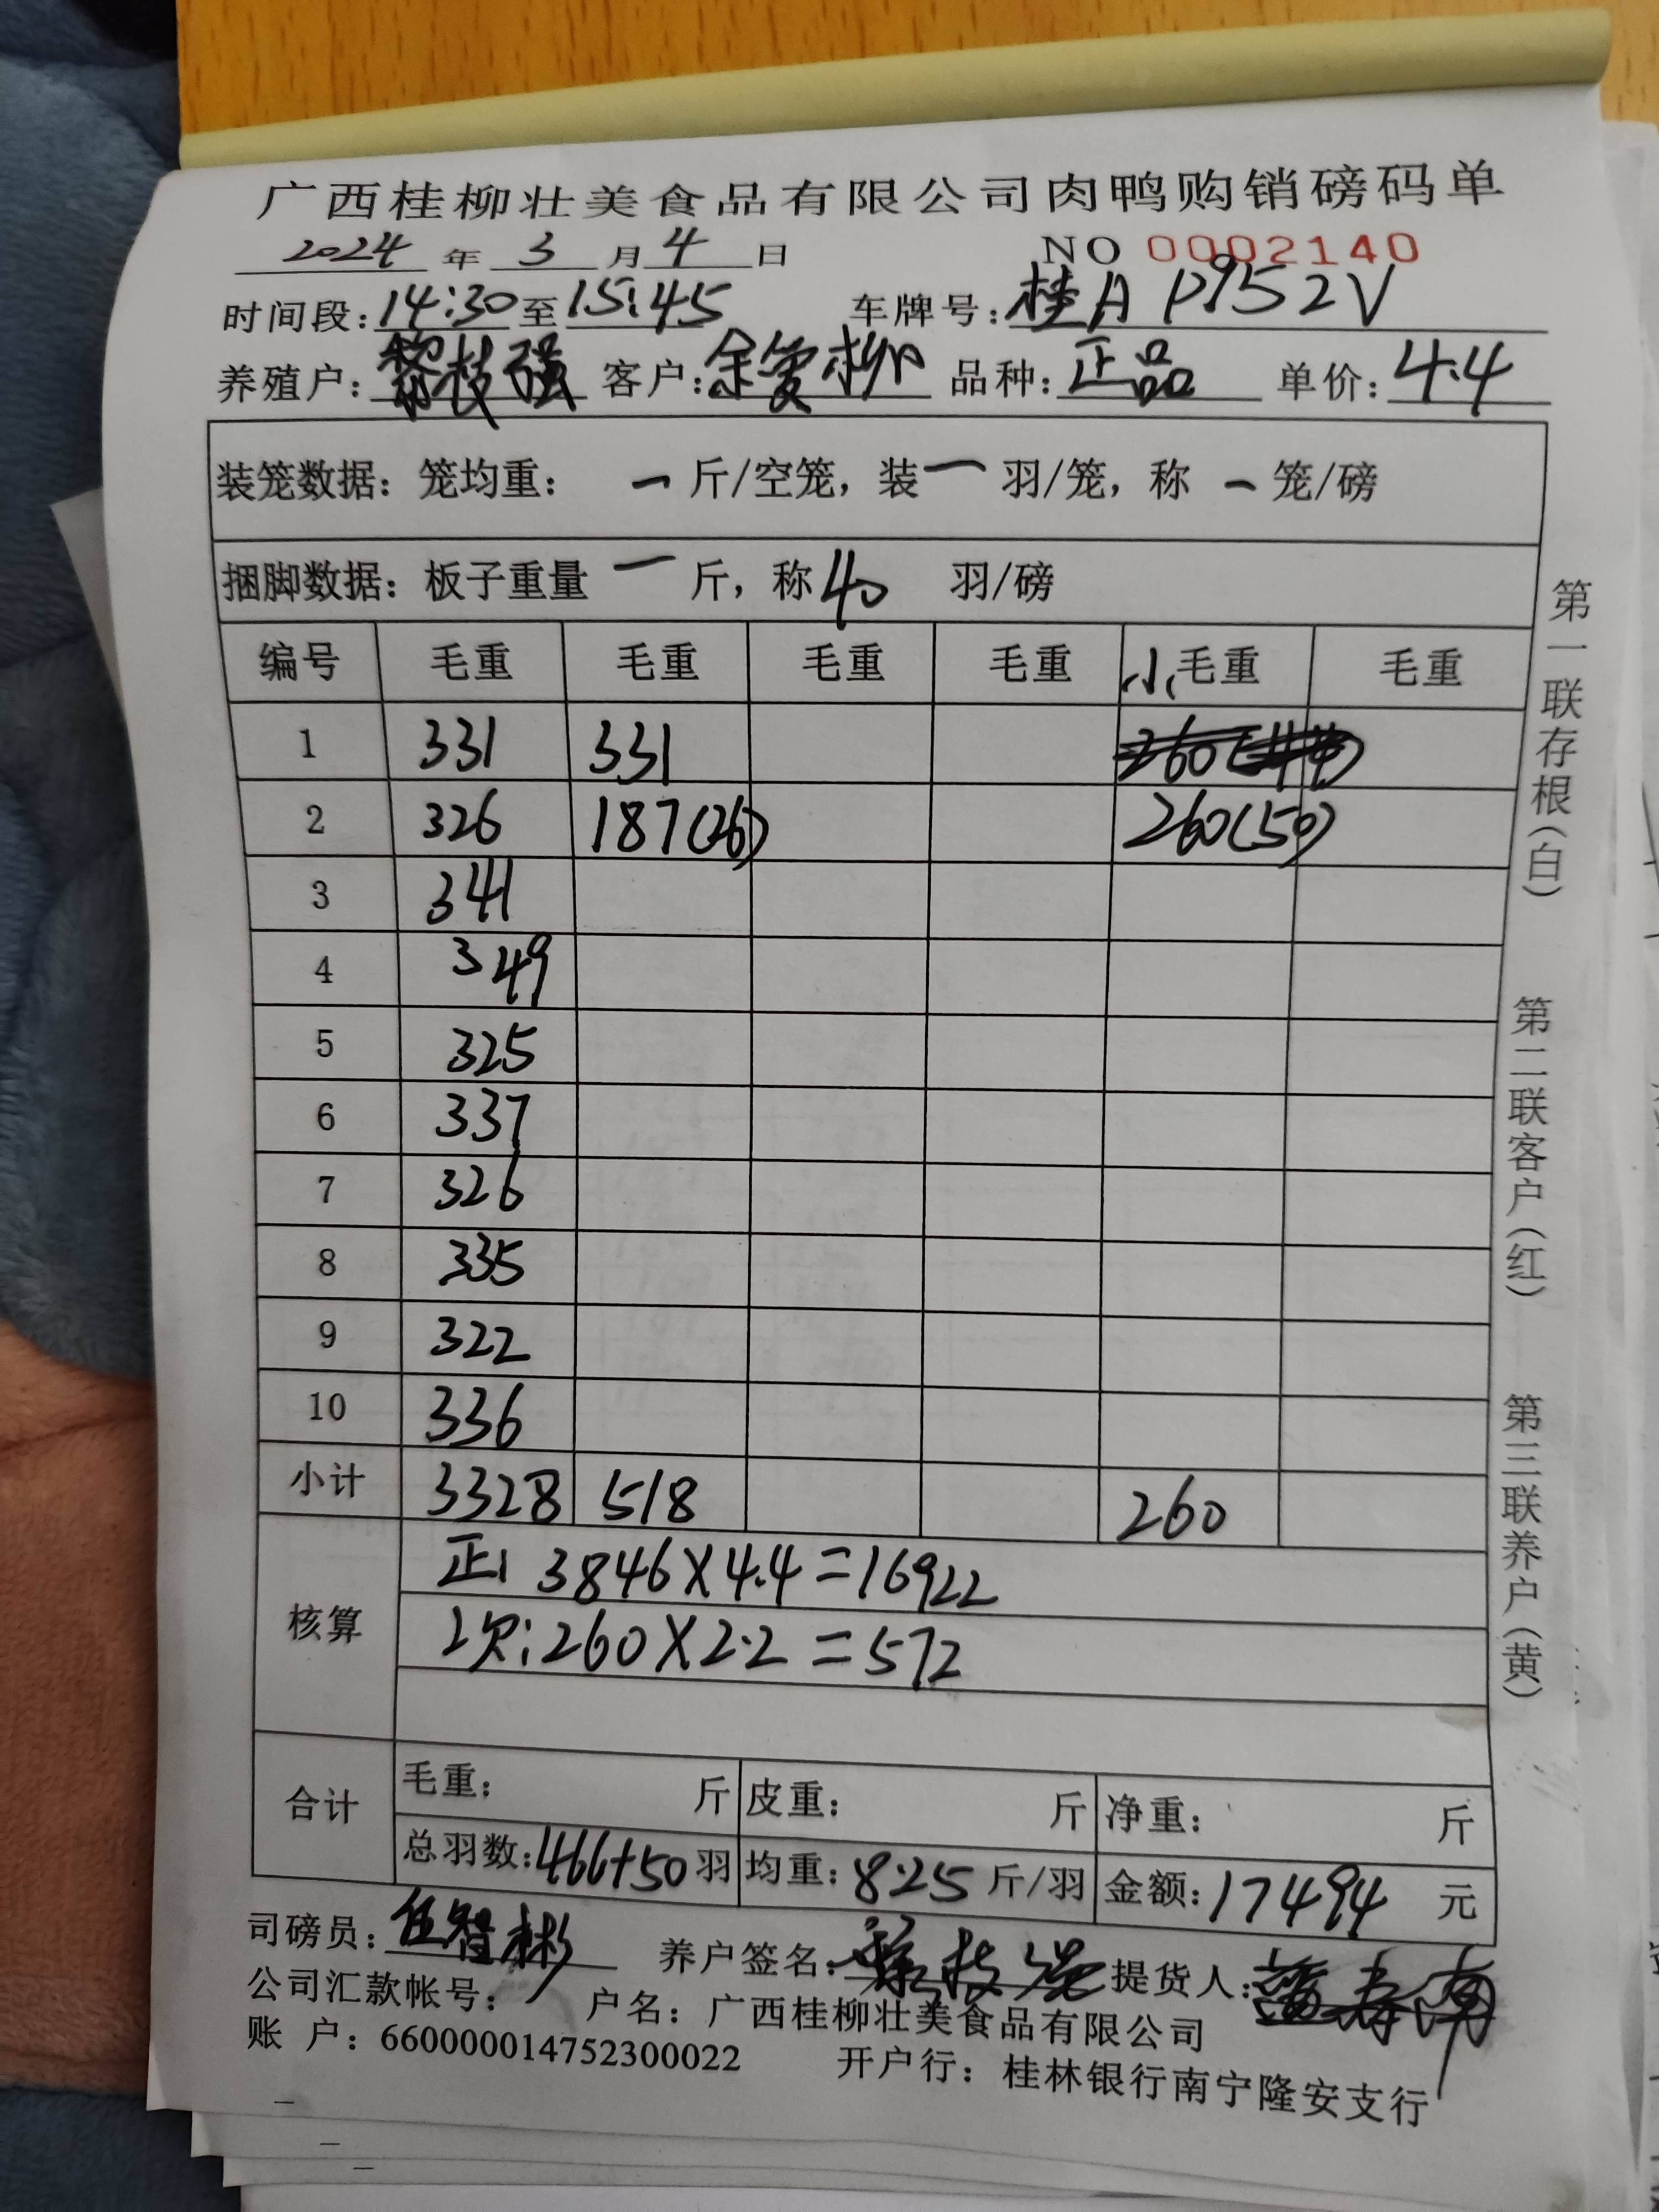 广西桂柳壮美食品有限公司肉鸭购销磅码单
2024 年 3 月 4 日 NO 0002140
时间段:14:30至15:45 车牌号:桂A P952V
养殖户:黎枝强 客户:余爱柳 品种:正品 单价:4.4
装笼数据:笼均重: 一 斤/空笼,装 一 羽/笼,称 一 笼/磅
捆脚数据:板子重量 一 斤,称 40 羽/磅
编号 毛重 毛重 毛重 毛重 小毛重 毛重
1 331 331
2 326 187(26) 260(50)
3 341
4 349
5 325
6 337
7 326
8 335
9 322
10 336
小计 3328 518 260
核算 正: 3846×4.4=16922
次:260×2.2=572
合计 毛重: 斤 皮重: 斤 净重: 斤
总羽数:466+50羽 均重:8.25斤/羽 金额:17494 元
司磅员:伍智彬 养户签名:黎枝强 提货人:
公司汇款帐号: 户名:广西桂柳壮美食品有限公司
账 户:660000014752300022 开户行:桂林银行南宁隆安支行
第一联存根(白)
第二联客户(红)
第三联养户(黄)